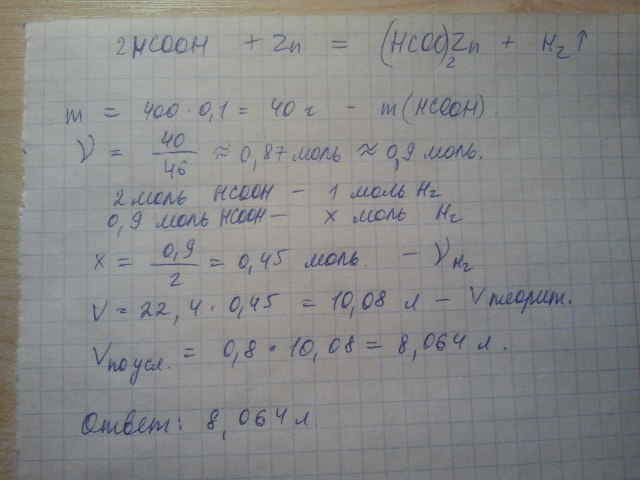 2HCOOH + Zn = (HCOO)₂Zn + H₂↑
m = 400 · 0,1 = 40 г - m(HCOOH).
ν = 40/46 ≈ 0,87 моль ≈ 0,9 моль.
2 моль HCOOH - 1 моль H₂
0,9 моль HCOOH - x моль H₂
x = 0,9/2 = 0,45 моль. - ν H₂
V = 22,4 · 0,45 = 10,08 л - V теорит.
V по усл. = 0,8 · 10,08 = 8,064 л.
Ответ: 8,064 л.